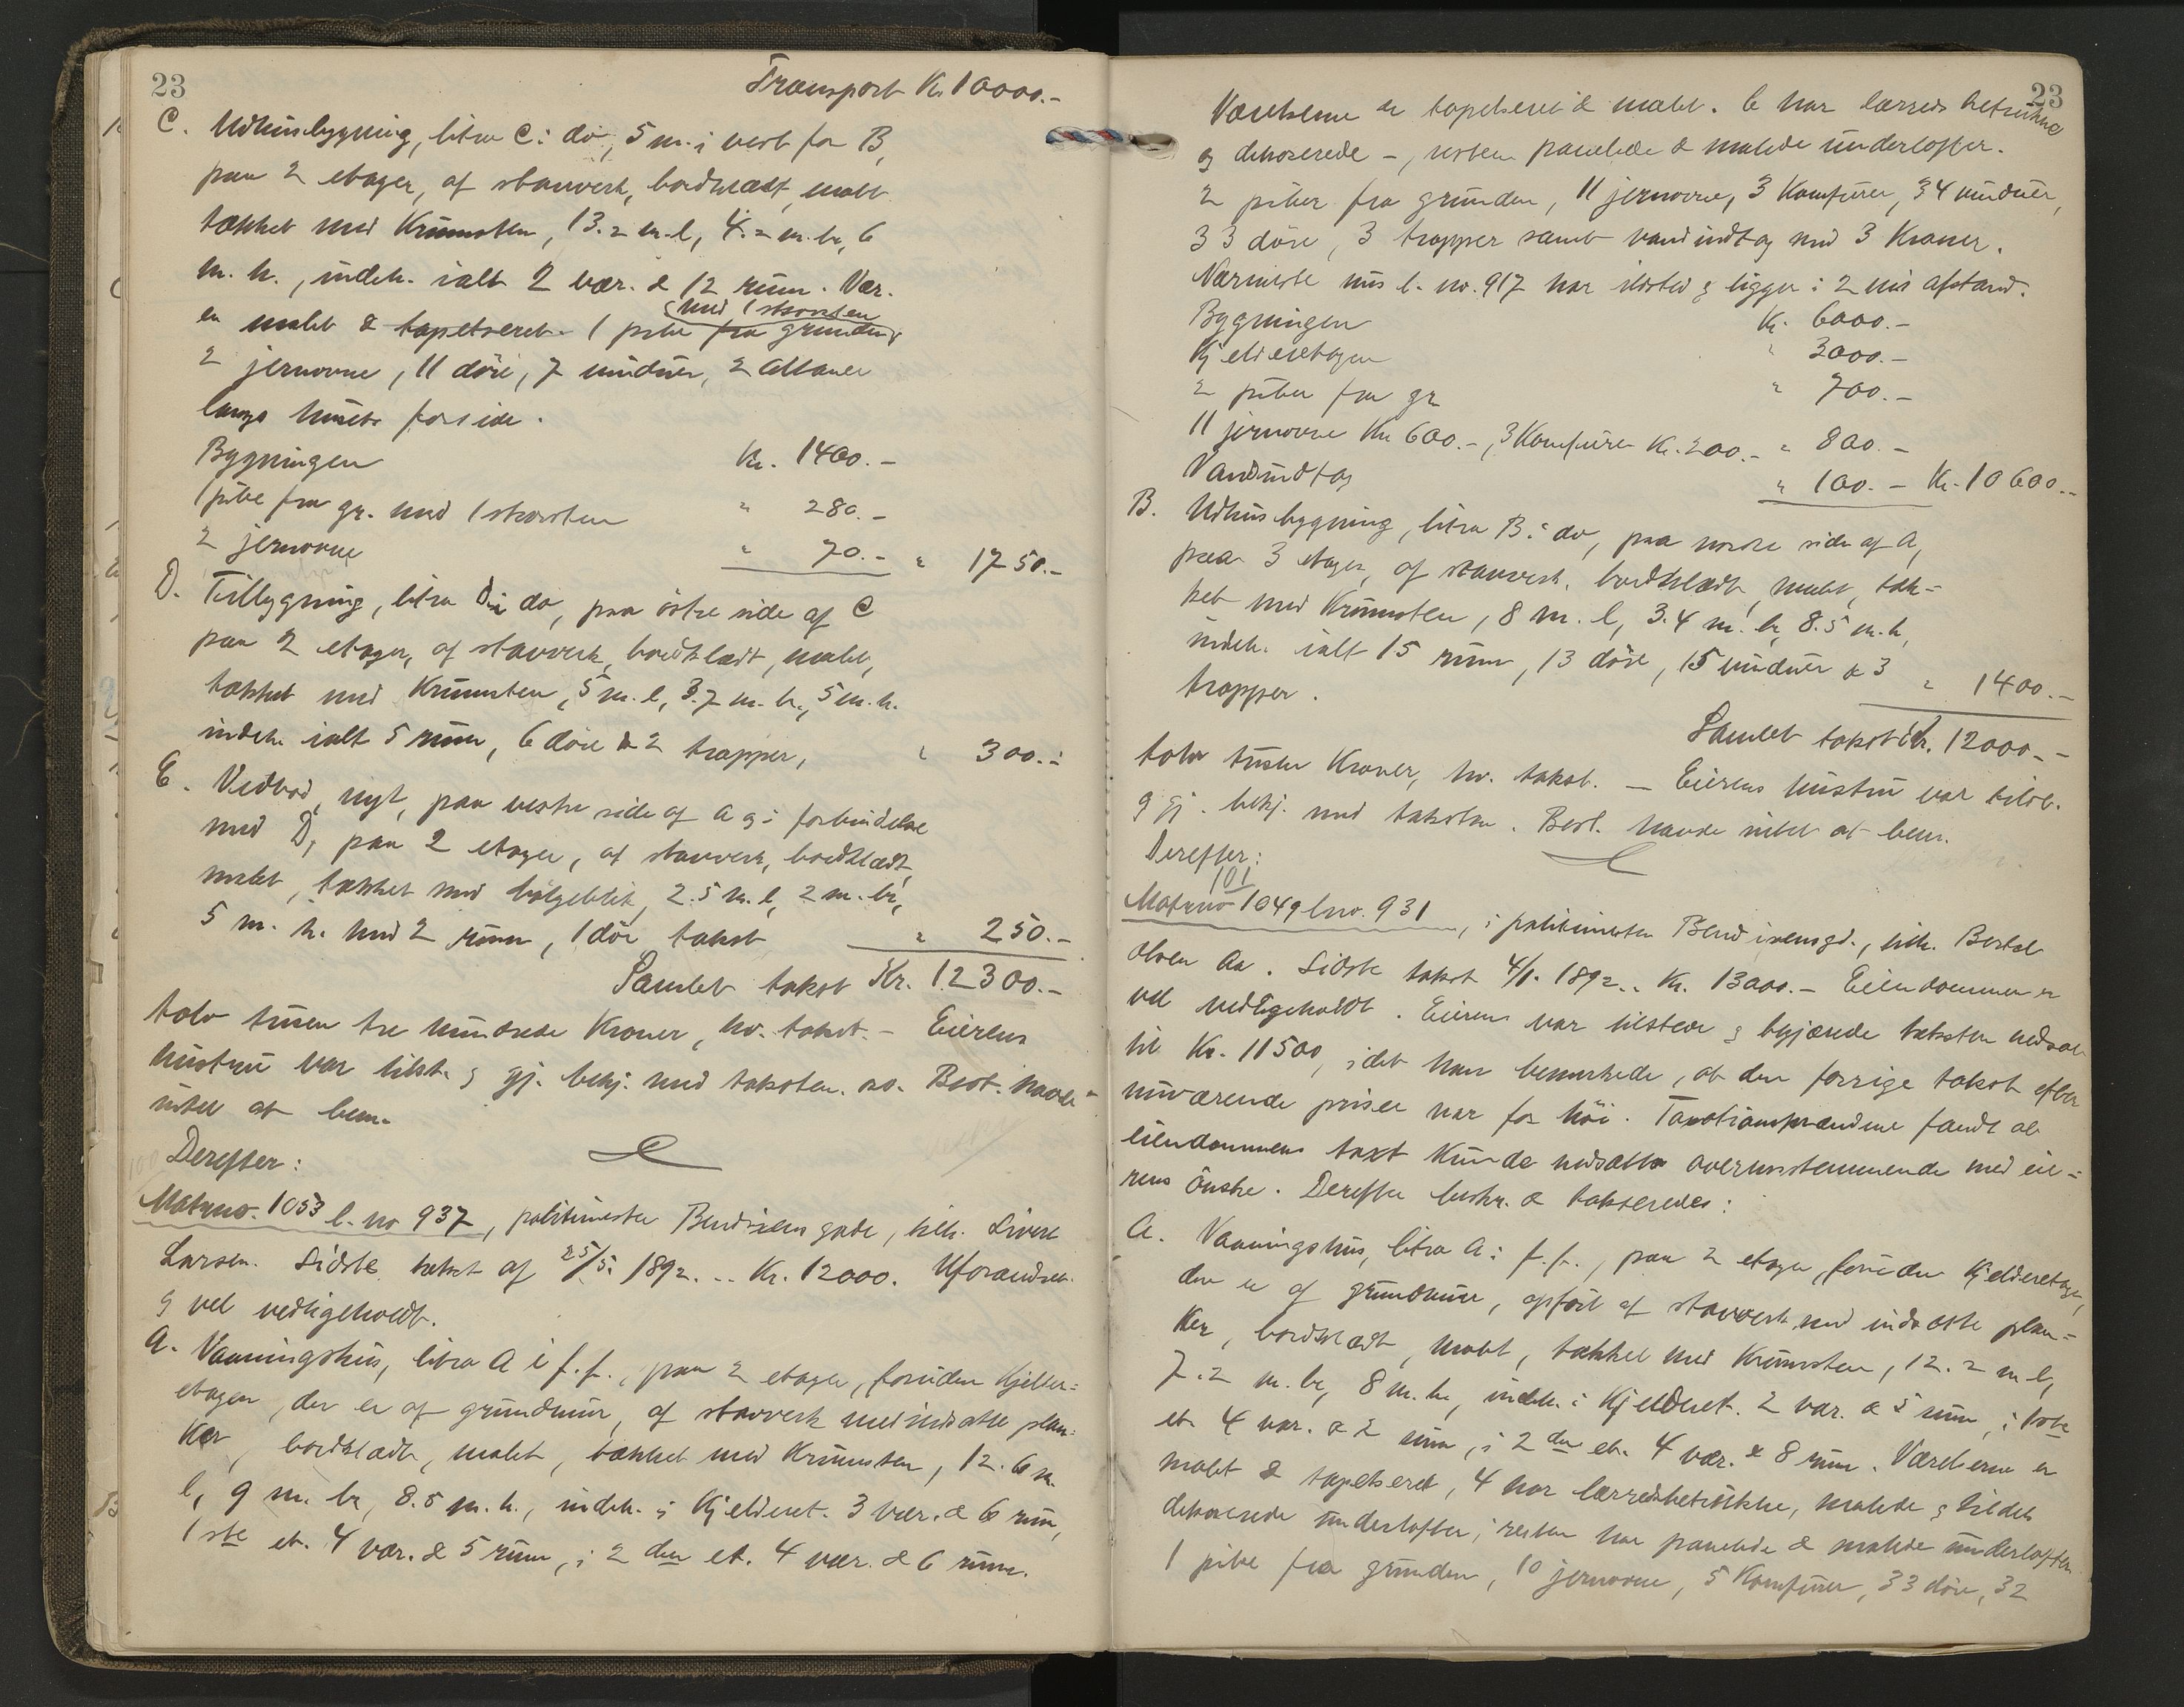 23
Transport Kr. 10000.-
C. Udhusbygning, litra C: do, 5 m. i vest for B,
paa 2 etager, af stavverk, bordklædt, malt
tækket med Krumsten, 13.2 m. l, 4.2 m. br, 6
m. h., indeh. ialt 2 vær. & 12 rum. Vær.
med 1 skorsten
er malet & tapetseret. 1 pibe fra grunden,
2 jernovne, 11 döre, 7 vinduer, 2 altaner
langs husets forside.
Bygningen Kr. 1400.-
1 pibe fra gr. med 1 skorsten " 280.-
2 jernovne " 70.- " 1750.-
D. Tilbygning, litra D: do, paa östre side af C
paa 2 etager, af stavverk, bordklædt, malet,
tækket med Krumsten, 5 m. l, 3.7 m. br., 5 m. h.
indeh. ialt 5 rum, 6 döre & 2 trapper, " 300.-
E. Vedbod, nyt, paa vestre side af A og i forbindelse
med D, paa 2 etager, af stavverk, bordklædt,
malet, tækket med bölgeblik, 2.5 m. l, 2 m. br,
5 m. h. med 2 rum, 1 dör, takst " 250.-
Samlet takst Kr. 12300.-
tolv tusen tre hundrede Kroner, hv. takst. - Eierens
hustru var tilst. & gj. bekj. med taksten. Best. havde
intet at bem.
Derefter:
100
Matrno. 1053 l. no 937, politimester Bendixens gade, tilh. Sivert
Larsen. Sidste takst af 25/5. 1892... Kr. 12000. Uforandret
& vel vedligeholdt.
A. Vaaningshus, litra A i f. f., paa 2 etager, foruden Kjelder=
etagen, der er af grundmur, af stavverk med indsatte plan=
ker, bordklædt, malet, tækket med Krumsten, 12.6 m.
l, 9 m. br, 8.5 m. h., indeh. i Kjelderet. 3 vær. & 6 rum,
1ste et. 4 vær. & 5 rum, i 2den et. 4 vær. & 6 rum.
23
Værelserne er tapetseret & malet. 6 har lærreds betrukne
og dekorerede -, resten panelede & malede underlofter.
2 piber fra grunden, 11 jernovne, 3 Komfurer, 34 vinduer,
33 döre, 3 trapper samt vandindtag med 3 Kraner.
Nærmeste hus l. no. 917 har ildsted & ligger i 2 m's afstand.
Bygningen Kr. 6000.-
Kjelderetagen " 3000.-
2 piber fra gr. " 700.-
11 jernovne Kr. 600.-, 3 Komfurer Kr. 200.- " 800.-
Vandindtag " 100.- Kr. 10600.-
B. Udhusbygning, litra B: do, paa nordre side af A,
paa 3 etager, af stavverk, bordklædt, malet, tæk=
ket med Krumsten, 8 m. l, 3.4 m. br, 8.5 m. h,
indeh. ialt 15 rum, 13 döre, 15 vinduer & 3
trapper. " 1400.-
Samlet takst Kr. 12000.-
tolv tusen Kroner, hv. takst. - Eierens hustru var tilst.
& gj. bekj. med taksten. Best. havde intet at bem.
Derefter:
101
Matrno 1049 lno. 931, i politimester Bendixensgd., tilh. Bertel
Olsen Aa. Sidste takst 4/1. 1892.. Kr. 13000.- Eiendommen er
vel vedligeholdt. Eieren var tilstede & begjærede taksten nedsat
til Kr. 11500, idet han bemerkede, at den forrige takst efter
nuværende priser var for höi. Taxtionsmændene fandt at
eiendommens taxt kunde nedsættes overensstemmende med eie=
rens önske. Derefter beskr. & taksteredes:
A. Vaaningshus, litra A: f. f., paa 2 etager, foruden Kjelderetage,
der er af grundmur, opfört af stavverk med indsatte plan=
ker, bordklædt, malet, tækket med Krumsten, 12.2 m l,
7.2 m. br, 8 m. h, indeh. i Kjelderet. 2 vær. & 5 rum, i 1ste
et. 4 vær. & 2 rum, i 2den et. 4 vær. & 8 rum. Værelserne er
malet & tapetseret, 4 har lærredsbetrukne, malede & tildels
dekorerede underlofter, resten har panelede & malede underlofter.
1 pibe fra grunden, 10 jernovne, 5 Komfurer, 33 döre, 32